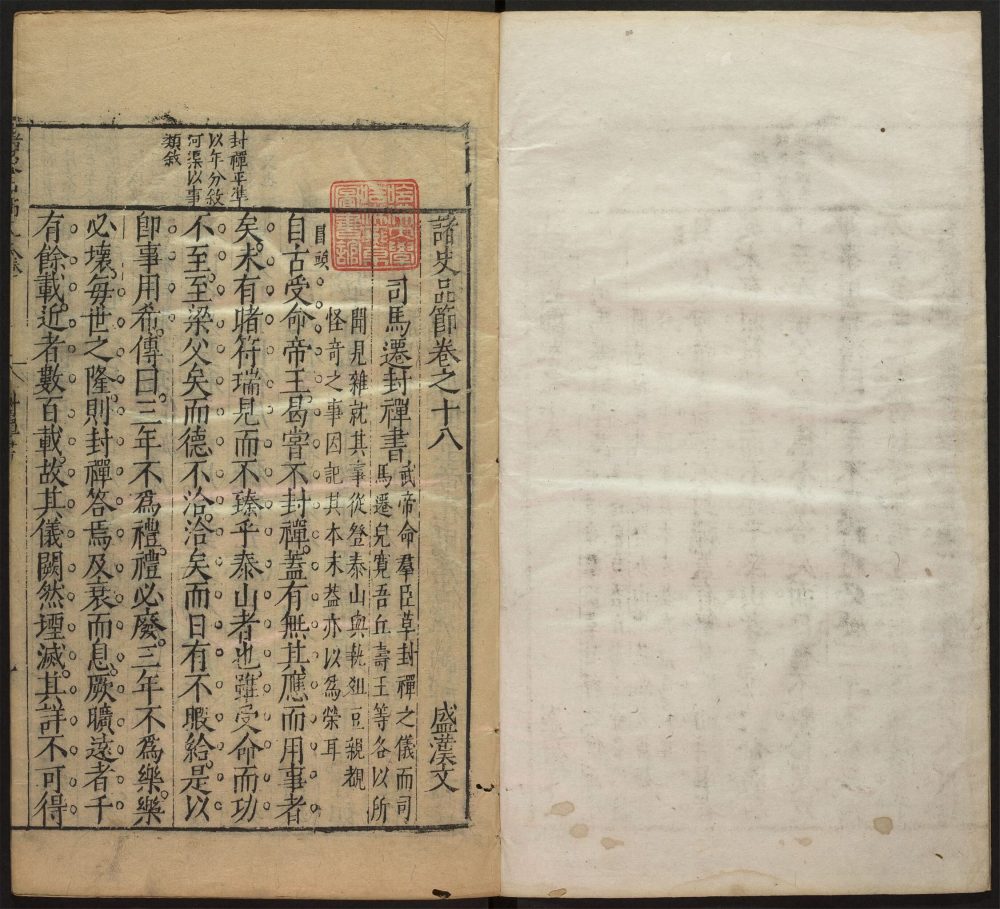 諸史品節卷之十八
盛漢文
司馬遷封禪書
武帝命羣臣草封禪之儀而司
馬遷兒寬吾丘壽王等各以所
聞見雜就其事從登泰山與執俎豆親覩
怪奇之事因記其本末葢亦以爲榮耳
冒頭
自古受命帝王曷嘗不封禪蓋有無其應而用事者
矣未有睹符瑞見而不臻乎泰山者也雖受命而功
不至至梁父矣而德不洽洽矣而日有不暇給是以
卽事用希傳曰三年不爲禮禮必廢三年不爲樂樂
必壞每世之隆則封禪答焉及衰而息厥曠遠者千
有餘載近者數百載故其儀闕然堙滅其詳不可得
封禪平準
以年分敘
河渠以事
類敘